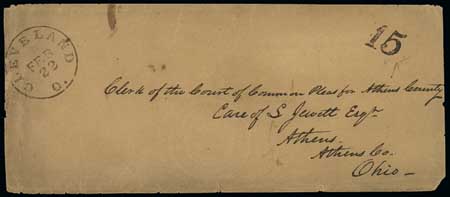 CLEVELAND O.
FEB
22
15
Clerk of the Court of Common Pleas for Athens County
Care of S Jewett Esqr.
Athens.
Athens Co.
Ohio –